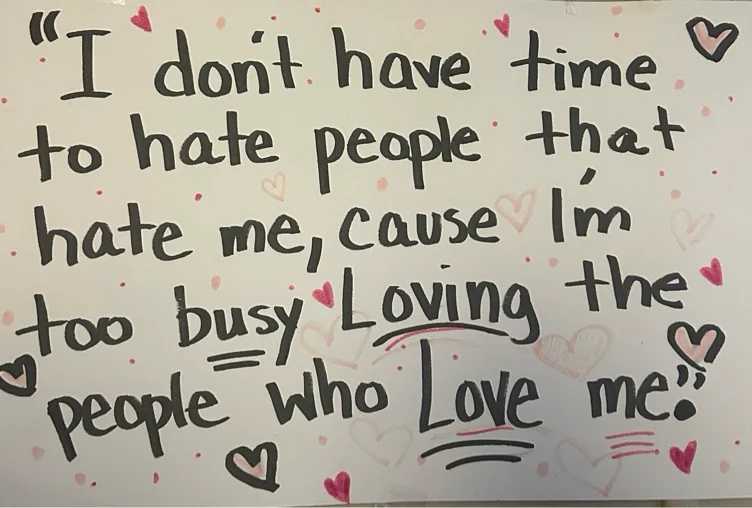 "I don't have time
to hate people that
hate me, cause I'm
too busy Loving the
people who Love me."